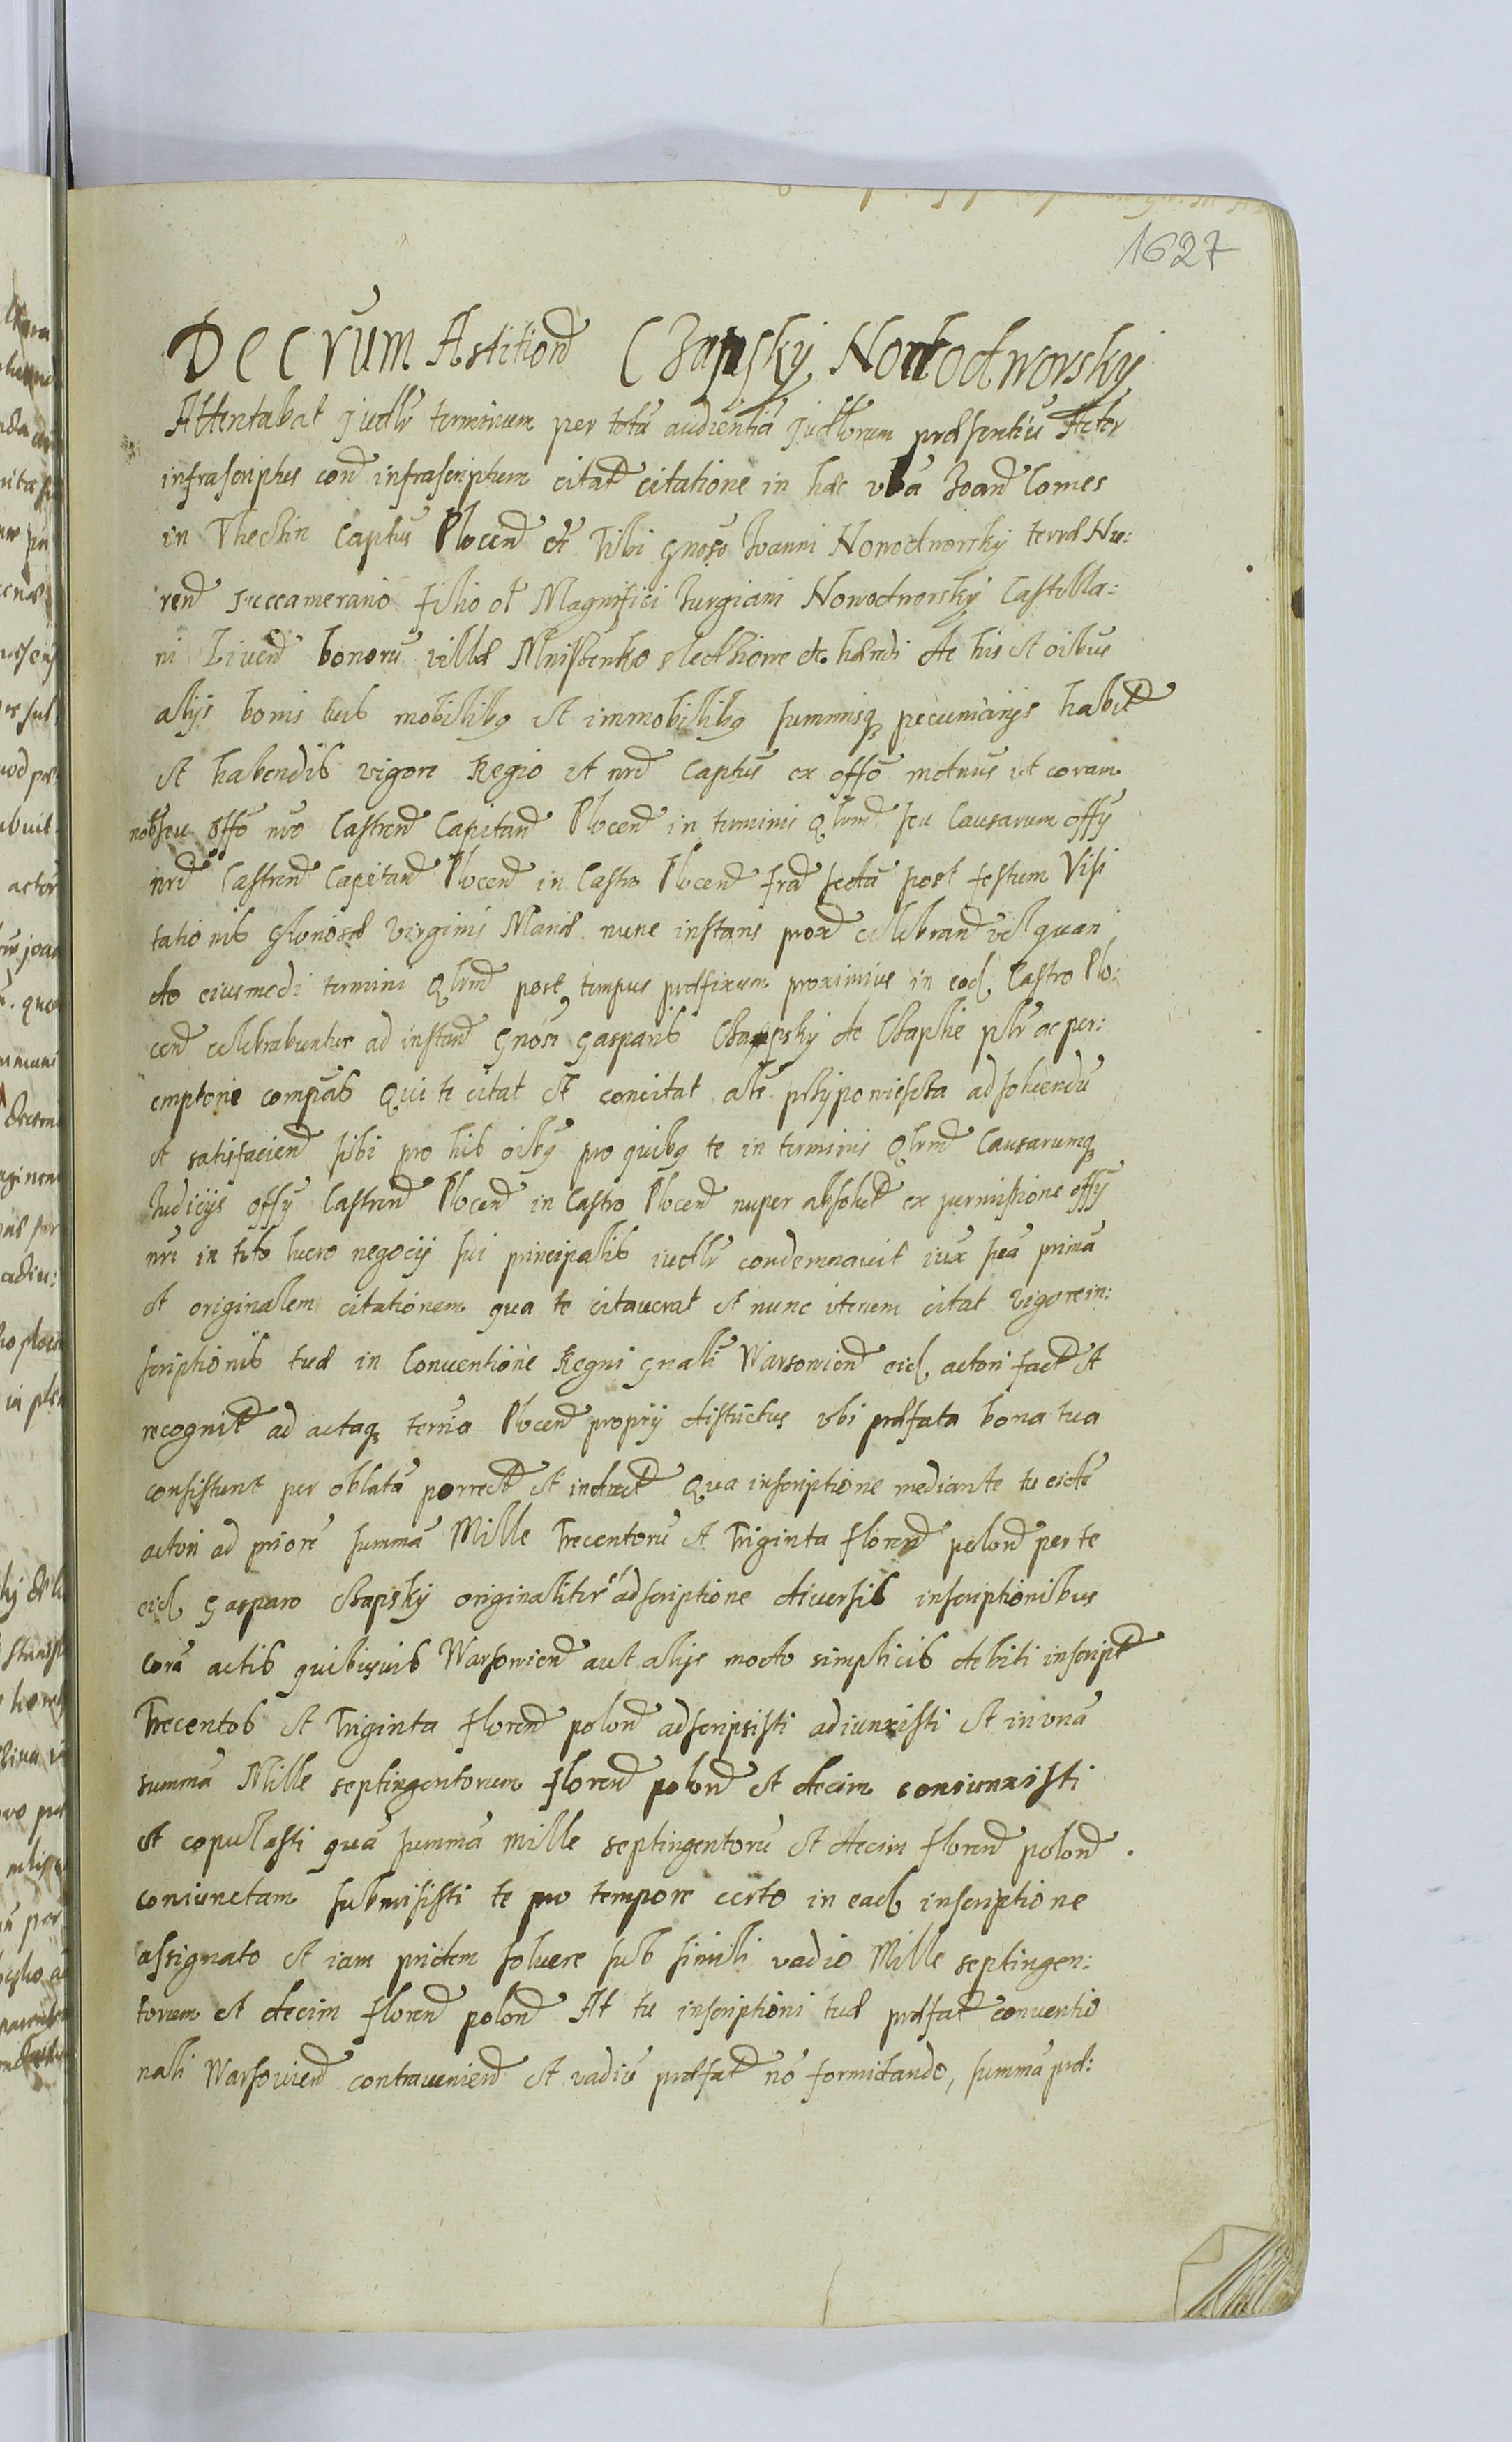 1627
Decrum Astitionē Czapsky Nowodworsky
Attentabat Judlr terminum per totā audientiā Judlorum præsentiū Actor
infrascriptus conē infrascriptum citatē citatione in hæc vba Joanē Comes
in Thechin Captus Plocenē etc Tibi Gnoso Joanni Nowodworsky terræ Nu:
renē succamerario filio ol Magnifici Jurgiani Nowodworsky Castella:
ni Livenē bonorū villæ etc hæredi de his et oibus
alys bonis tuis mobilibq et immobilibq summisq pecuniarijs habitē
et habendis vigore Regio et nrē captus ex offo mctnus ut coram
nob seu offo nro Castrenē Capitanē Plocenē in terminis Qlrmē seu Causarum offy
nrē Castrenē Capitanē Plocenē in Castro Plocenē fra sextā post festum Visi
tationis Gloriosæ Virginis Mariæ nunc instans proxē celebranē vel quan
do eiusmodi termini Qlrmē post tempus præfixum proximius in eod Castro Plo:
cenē celebrabuntur ad instanē Gnosi Gasparis Czapsky de Czaplie plr ac per:
emptorie compās Qui te citat et concitat als przypowiesczta ad soluendū
et satisfacienē sibi pro his oibq pro quibq te in terminis Qlrmē Causarumq
Judicijs offy Castrenē Plocenē in Castro Plocenē nuper absolutē ex permissione offy
nri in toto lucro negocij sui principalis iudlr condemnauit iux suā primā
et originalem citationem qua te citauerat et nunc iterum citat vigore in:
scriptionis tuæ in Conventione Regni Gnali Warsowienē eid actori factē et
recognitē ad actaq terria Plocenē proprij districtus vbi præfata bona tua
consistunt per oblatā porrectē et inductē Qua inscriptione mediante tu eidē
actori ad priorē summā Mille Trecentorū et Triginta florenē polonē per te
eid Gasparo Czapsky originaliter adscriptione diversis inscriptionibus
corā actis quibusuis Warsowienē aut alijs modo simplicis debiti inscriptē
Trecentos et Triginta florenē polonē adscripsisti adiunxisti et in vnā
summā Mille septingentorum florenē polonē et decim coniunxisti
et copulasti quā summā mille septingentorū et decim florenē polonē.
coniunctam submisisti te pro tempore certo in ead inscriptione
assignato et iam pridem soluere sub simili vadio Mille septingen:
torum et decim florenē polonē At tu inscriptioni tuæ præfatē conventio
nali Warsowienē contravenienē et vadiū præfatē nō formidando, summā præ: